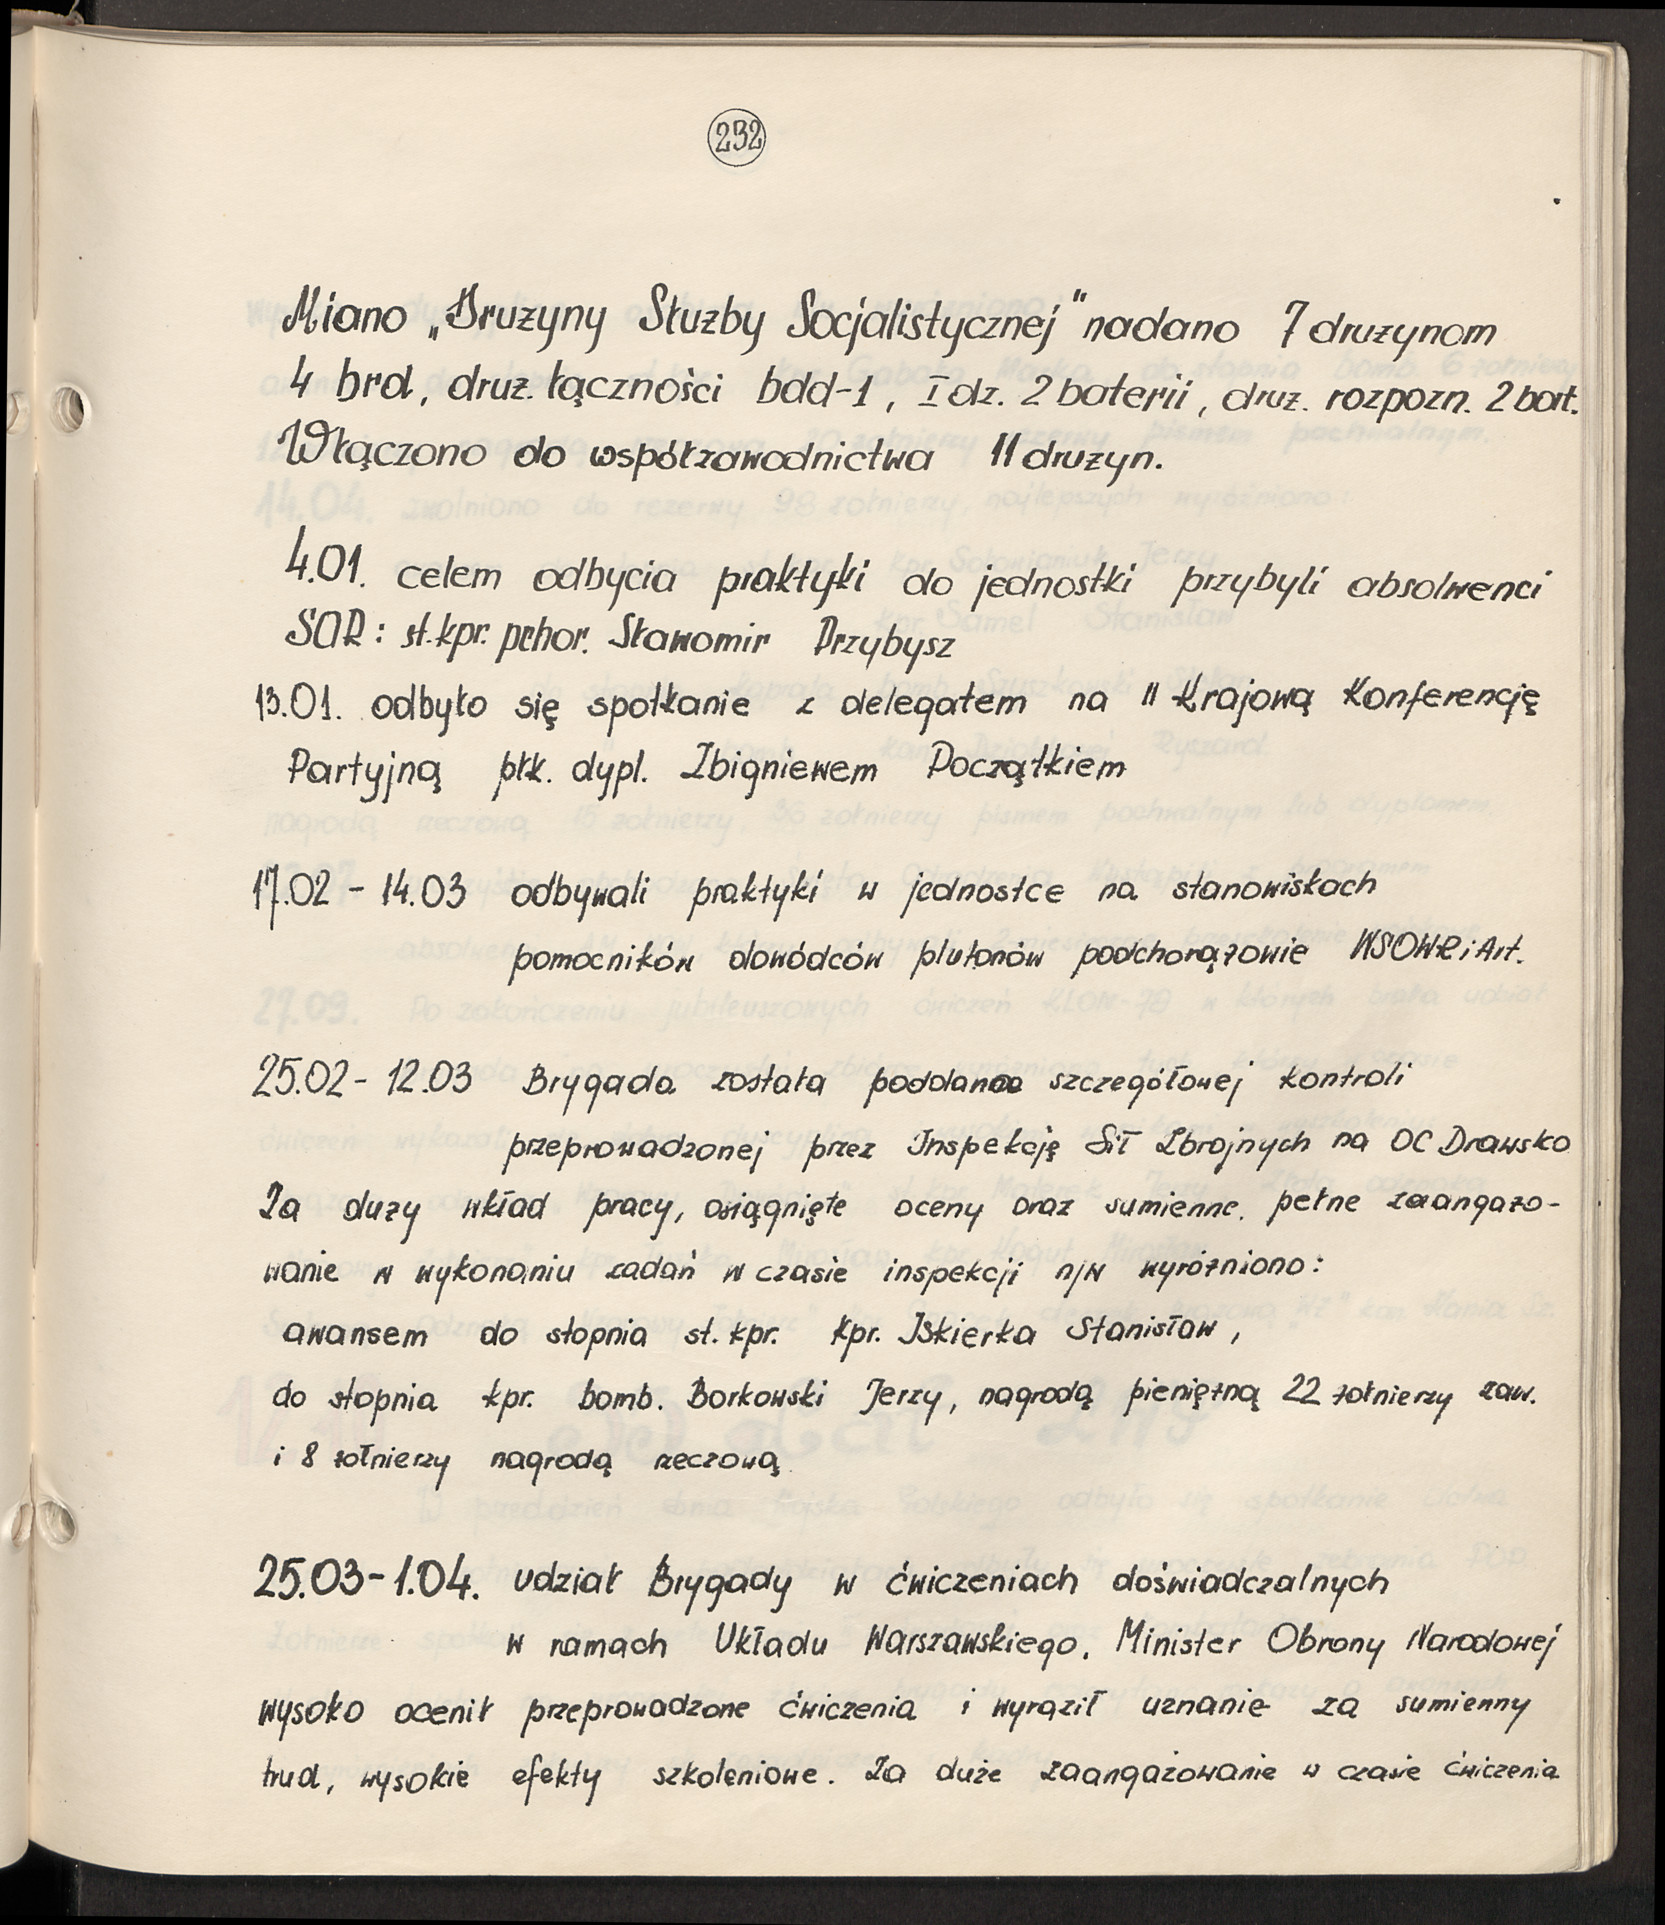 232
Miano „Drużyny Służby Socjalistycznej" nadano 7 drużynom
4 brd, druż. łączności bdd-1, I dz. 2 baterii, druż. rozpozn. 2 bat.
Włączono do współzawodnictwa 11 drużyn.
4.01. celem odbycia praktyki do jednostki przybyli absolwenci
SOR: st. kpr. pchor. Sławomir Przybysz
13.01. odbyło się spotkanie z delegatem na II Krajową Konferencję
Partyjną płk. dypl. Zbigniewem Początkiem
17.02 - 14.03 odbywali praktyki w jednostce na stanowiskach
pomocników dowódców plutonów podchorążowie WSOWRiArt.
25.02 - 12.03 Brygada została poddana szczegółowej kontroli
przeprowadzonej przez Inspekcję Sił Zbrojnych na OC Drawsko
Za duży wkład pracy, osiągnięte oceny oraz sumienne, pełne zaangażo-
wanie w wykonaniu zadań w czasie inspekcji n/w wyróżniono:
awansem do stopnia st. kpr. kpr. Iskierka Stanisław,
do stopnia kpr. bomb. Borkowski Jerzy, nagrodą pieniężną 22 żołnierzy zaw.
i 8 żołnierzy nagrodą rzeczową
25.03 - 1.04. udział Brygady w ćwiczeniach doświadczalnych
w ramach Układu Warszawskiego. Minister Obrony Narodowej
wysoko ocenił przeprowadzone ćwiczenia i wyraził uznanie za sumienny
trud, wysokie efekty szkoleniowe. Za duże zaangażowanie w czasie ćwiczenia